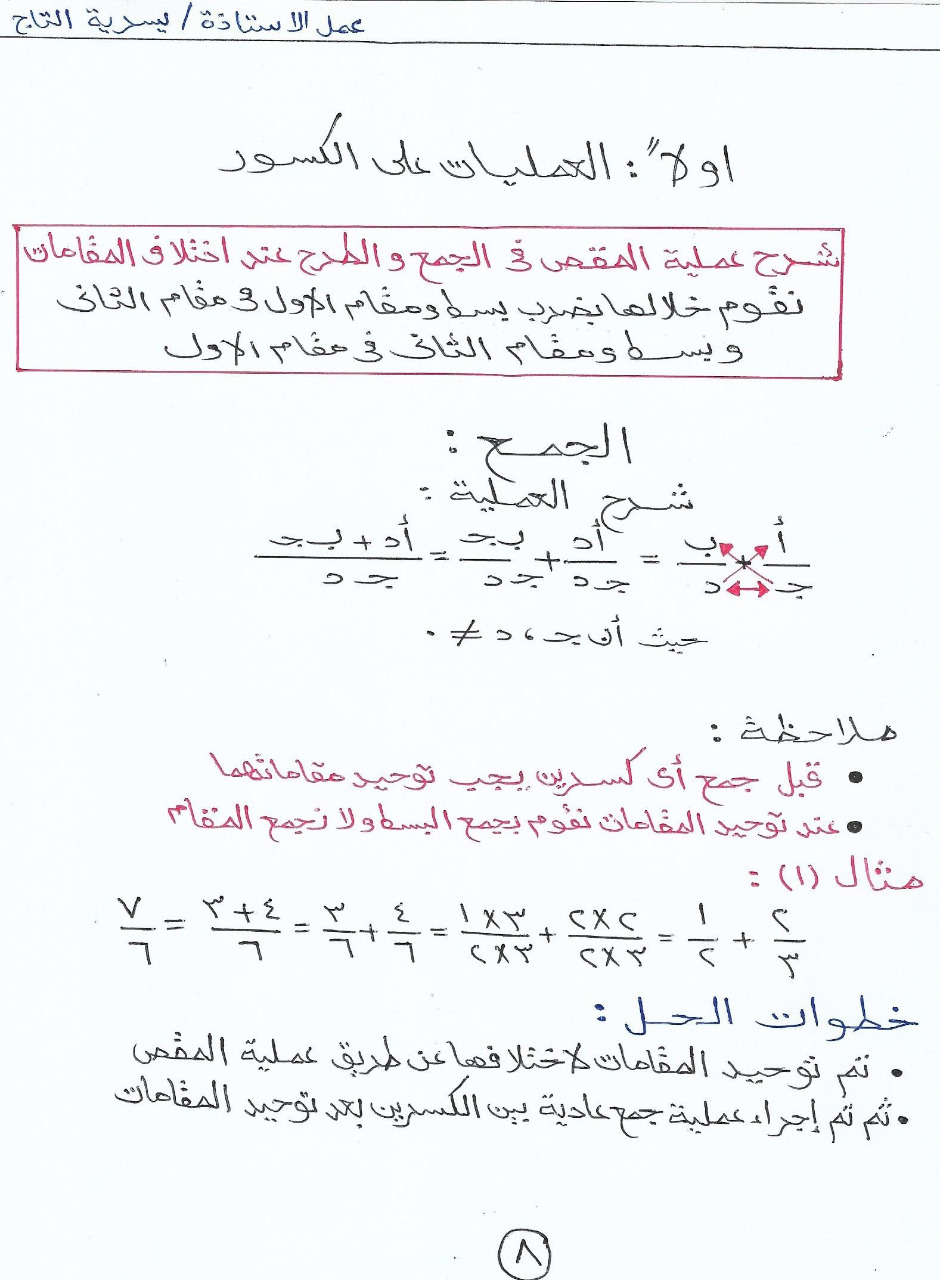 عمل الاستاذة / يسرية التاج
اولاً : العمليات على الكسور
شرح عملية المقص فى الجمع و الطرح عند اختلاف المقامات
نقوم خلالها بضرب بسط ومقام الاول فى مقام الثانى
و بسط ومقام الثانى فى مقام الاول
الجمع :
شرح العملية :
أ/جـ + ب/د = أد/جـ د + ب جـ/جـ د = أد + ب جـ/جـ د
حيث أن جـ ، د ≠ ٠
ملاحظة :
• قبل جمع أى كسرين يجب توحيد مقاماتهما
• عند توحيد المقامات نقوم بجمع البسط ولا نجمع المقام
مثال (١) :
٢/٣ + ١/٢ = ٢×٢/٢×٣ + ١×٣/٢×٣ = ٤/٦ + ٣/٦ = ٣+٤/٦ = ٧/٦
خطوات الحل :
• تم توحيد المقامات لاختلافها عن طريق عملية المقص
• ثم تم إجراء عملية جمع عادية بين الكسرين بعد توحيد المقامات
٨